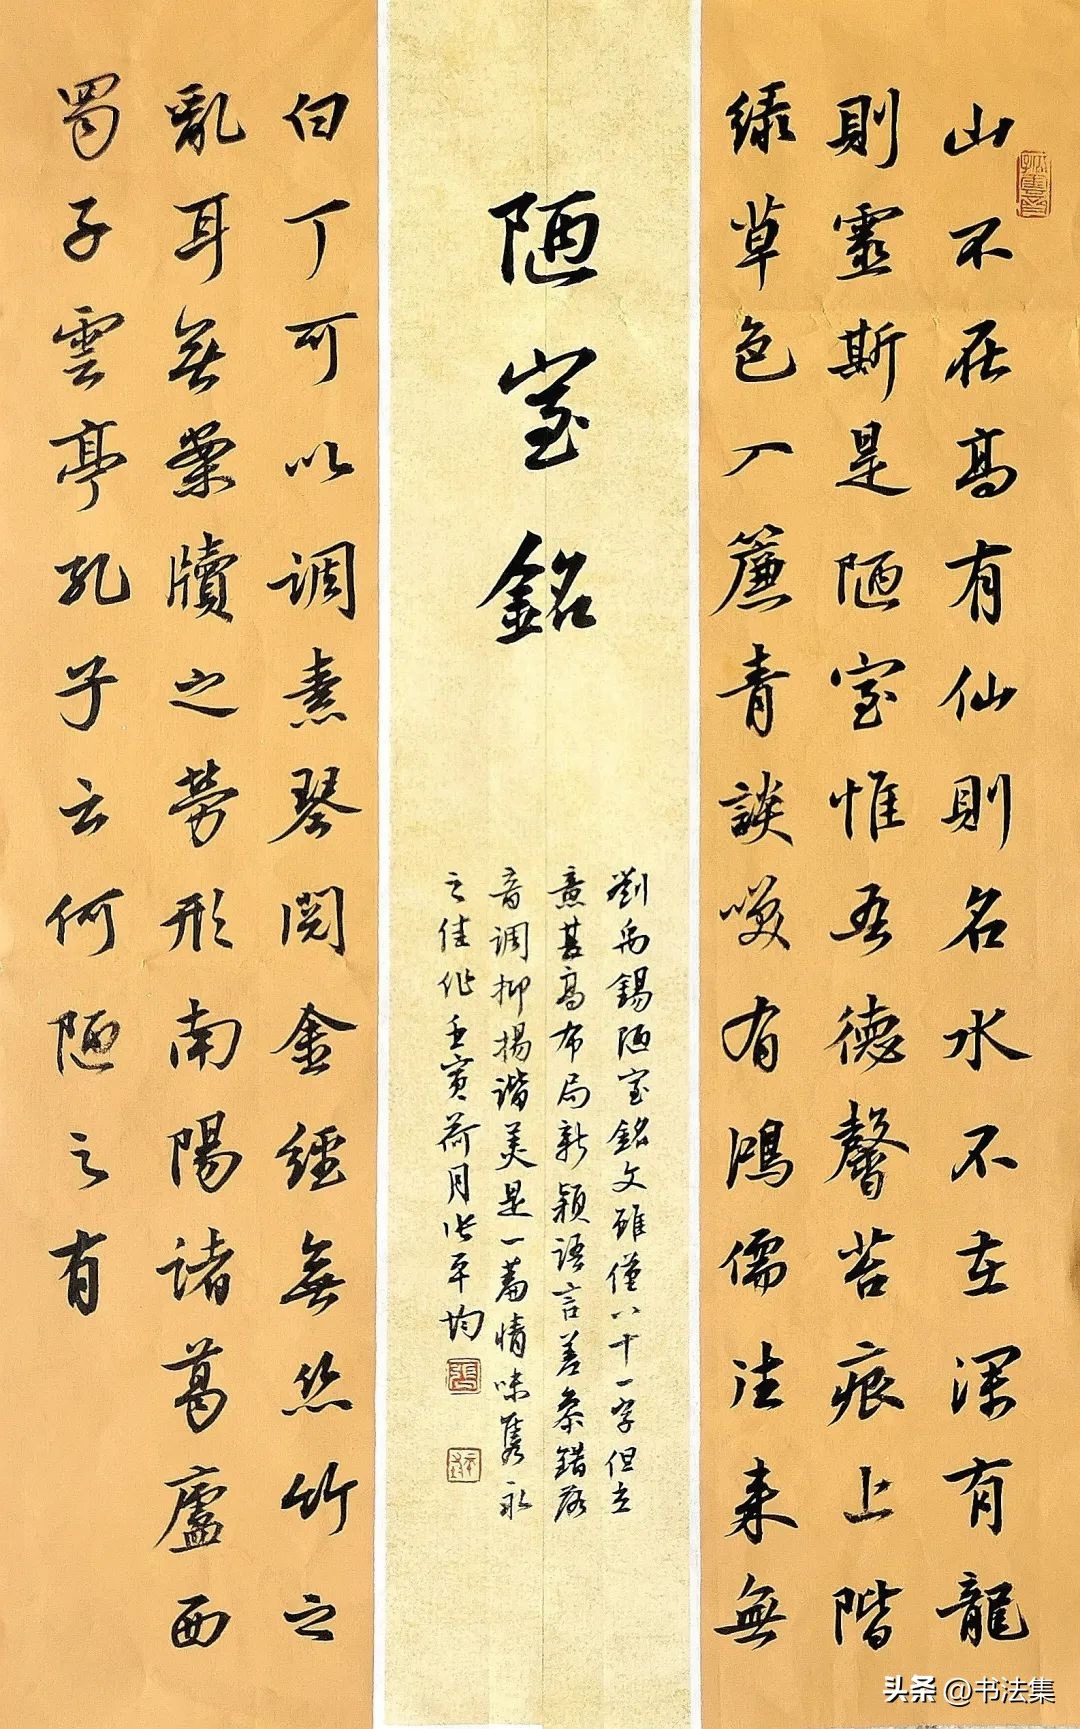 山不在高有仙則名水不在深有龍
則靈斯是陋室惟吾德馨苔痕上階
綠草色入簾青談笑有鴻儒往来無
陋室銘
劉禹錫陋室銘文雖僅八十一字但立
意甚高布局新穎語言善參錯落
音調抑揚諧美是一篇情味雋永
之佳作壬寅荷月張平均
張
白丁可以調素琴閱金經無絲竹之
亂耳無案牘之勞形南陽諸葛廬西
蜀子雲亭孔子云何陋之有
头条 @书法集